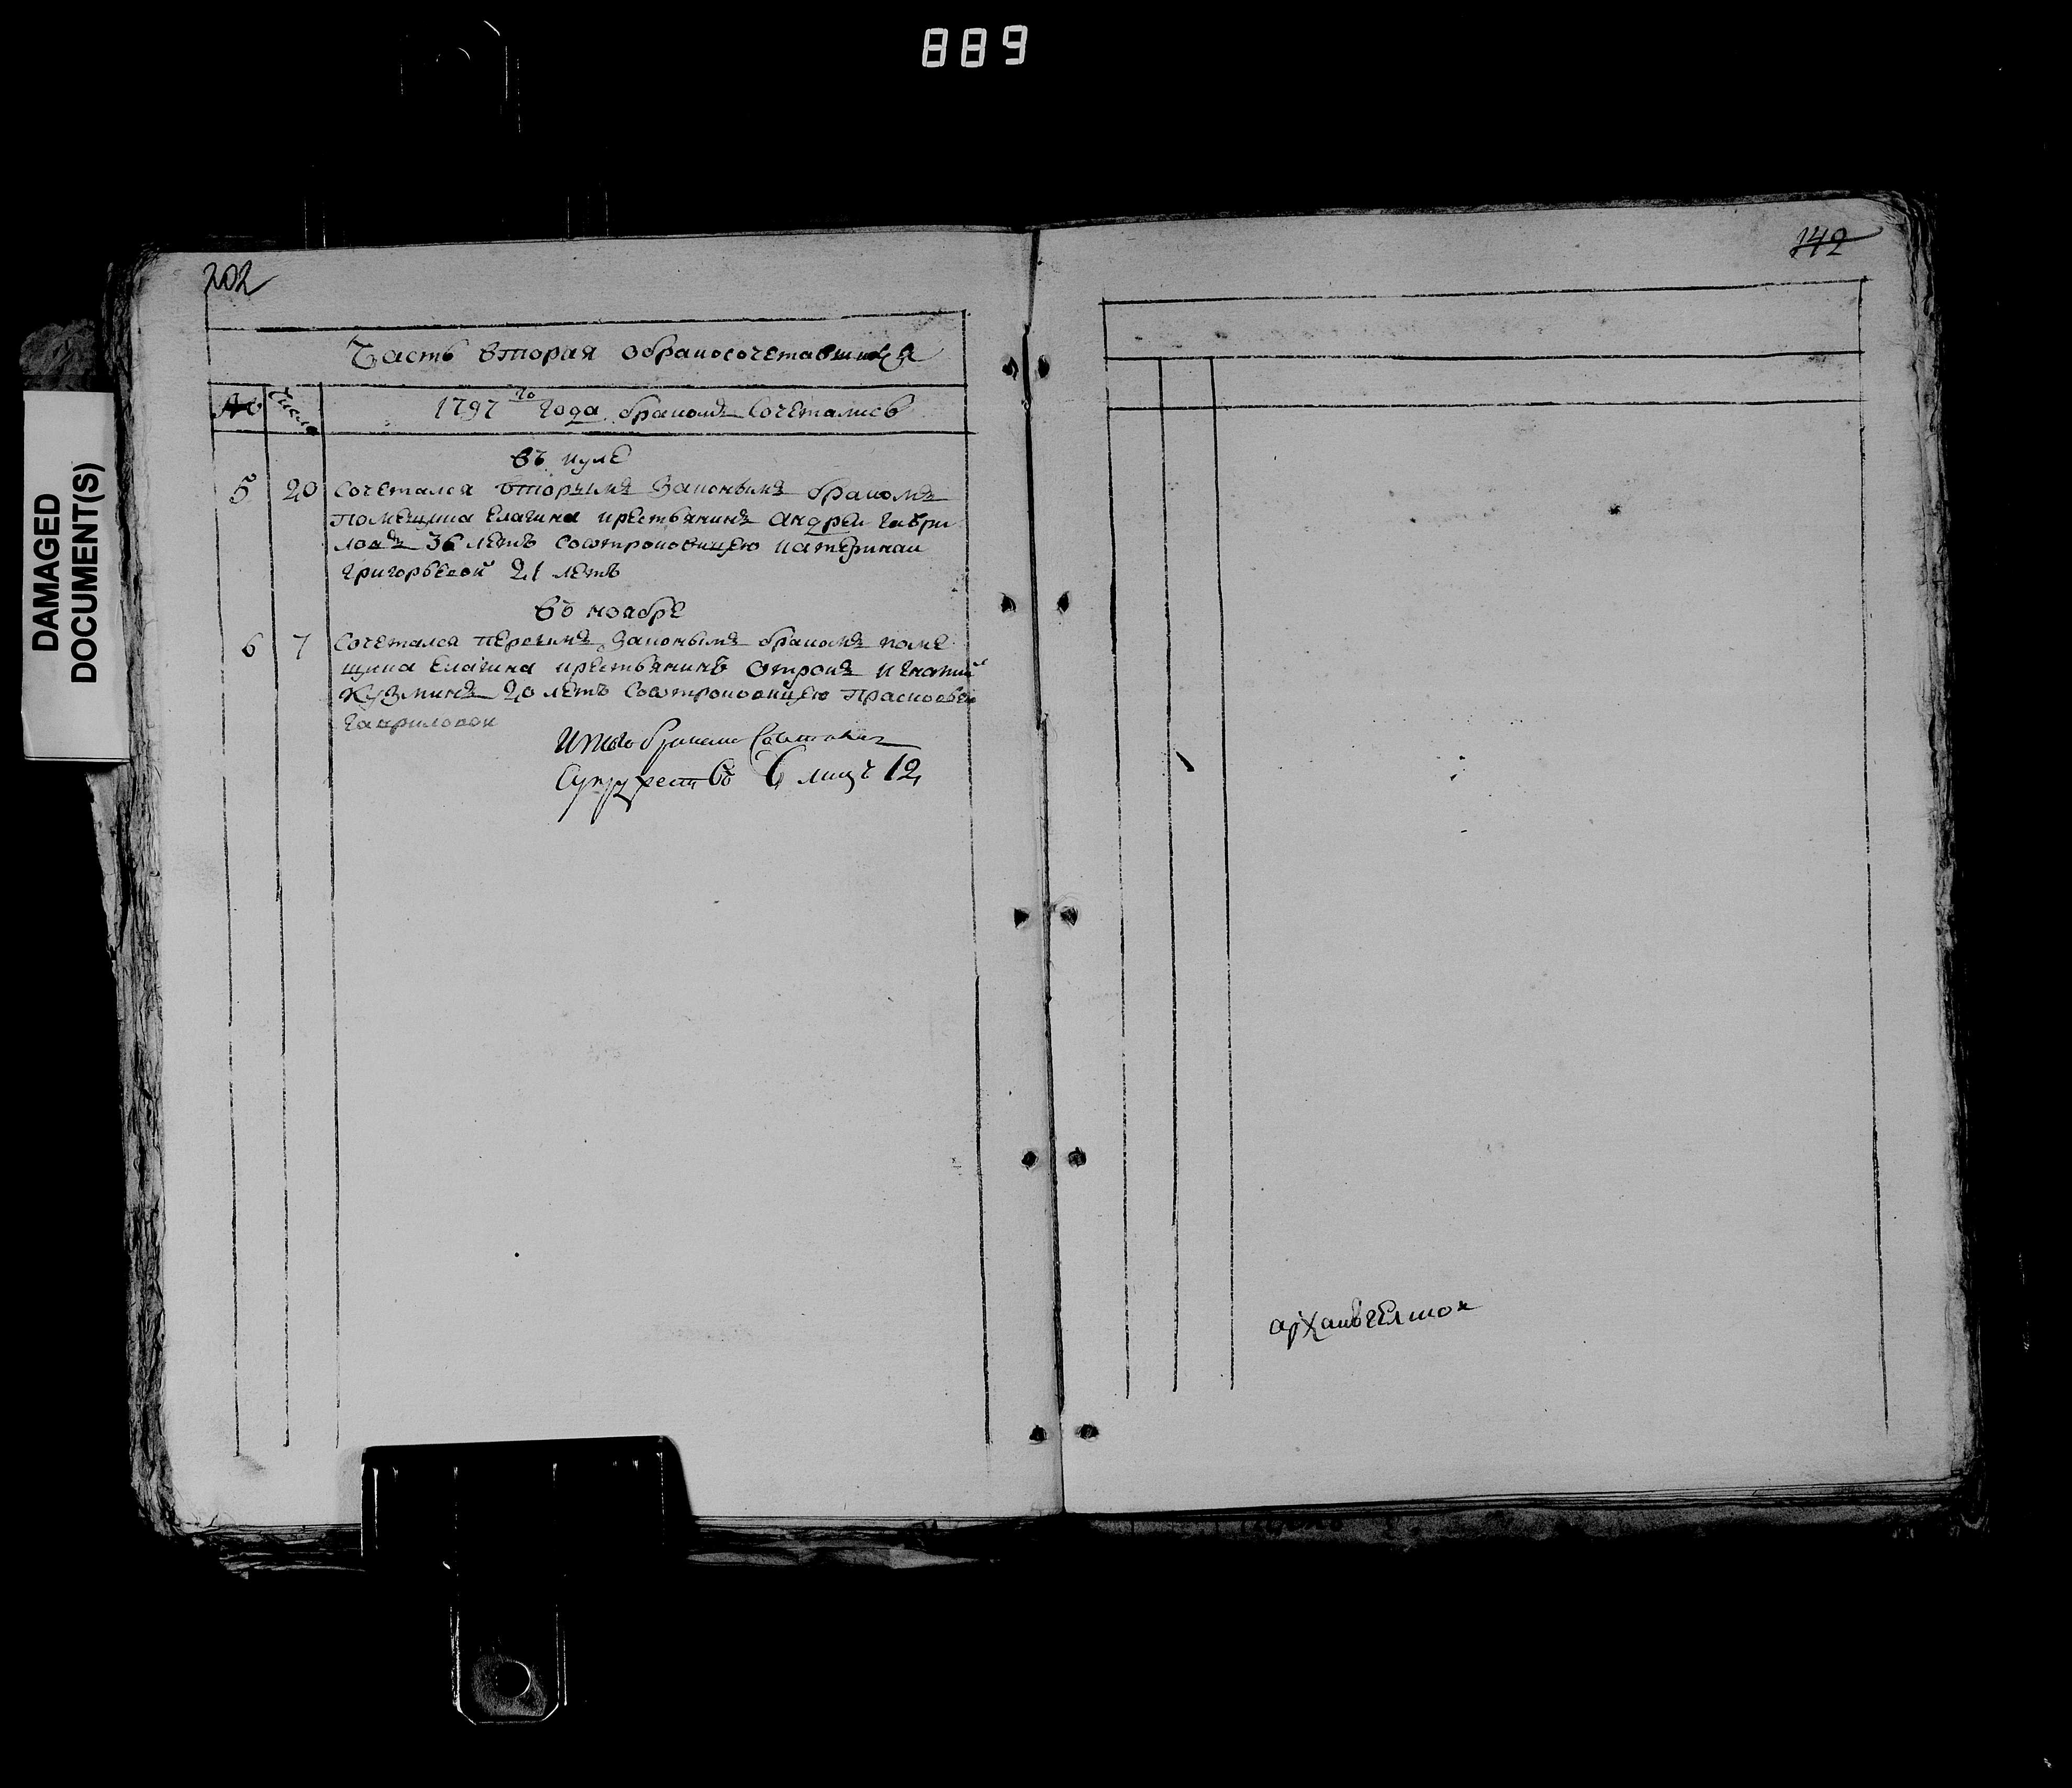 889
202
142
DAMAGED
DOCUMENT(S)
Часть вторая обракосочетавшихся
№ Число 1797 го года бракомъ Сочетались
въ иуле
5 20 сочетался вторымъ законымъ бракомъ
помещика Елагина крестьянинъ андреи гаври
ловъ 36 летъ соотроковицею катеринаи
григорьевои 21 летъ
въ ноябре
6 7 Сочетался первымъ законымъ бракомъ поме
щика Елагина крестьянинъ отрокъ игнатий
Кузминъ 20 летъ соотроковицею Прасковьеи
гавриловои
Итого браком
Супружествъ 6 лицъ 12